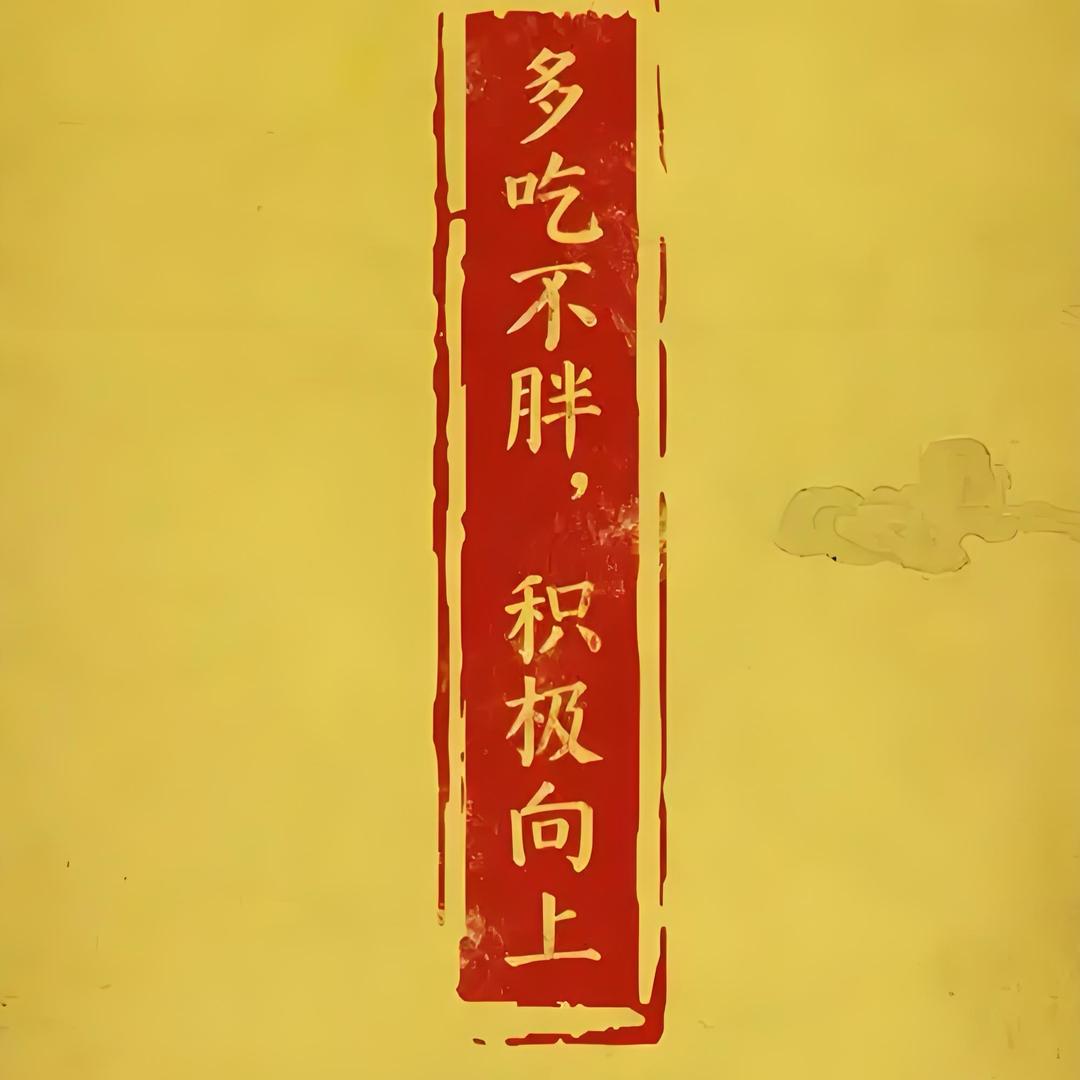 多吃不胖，积极向上